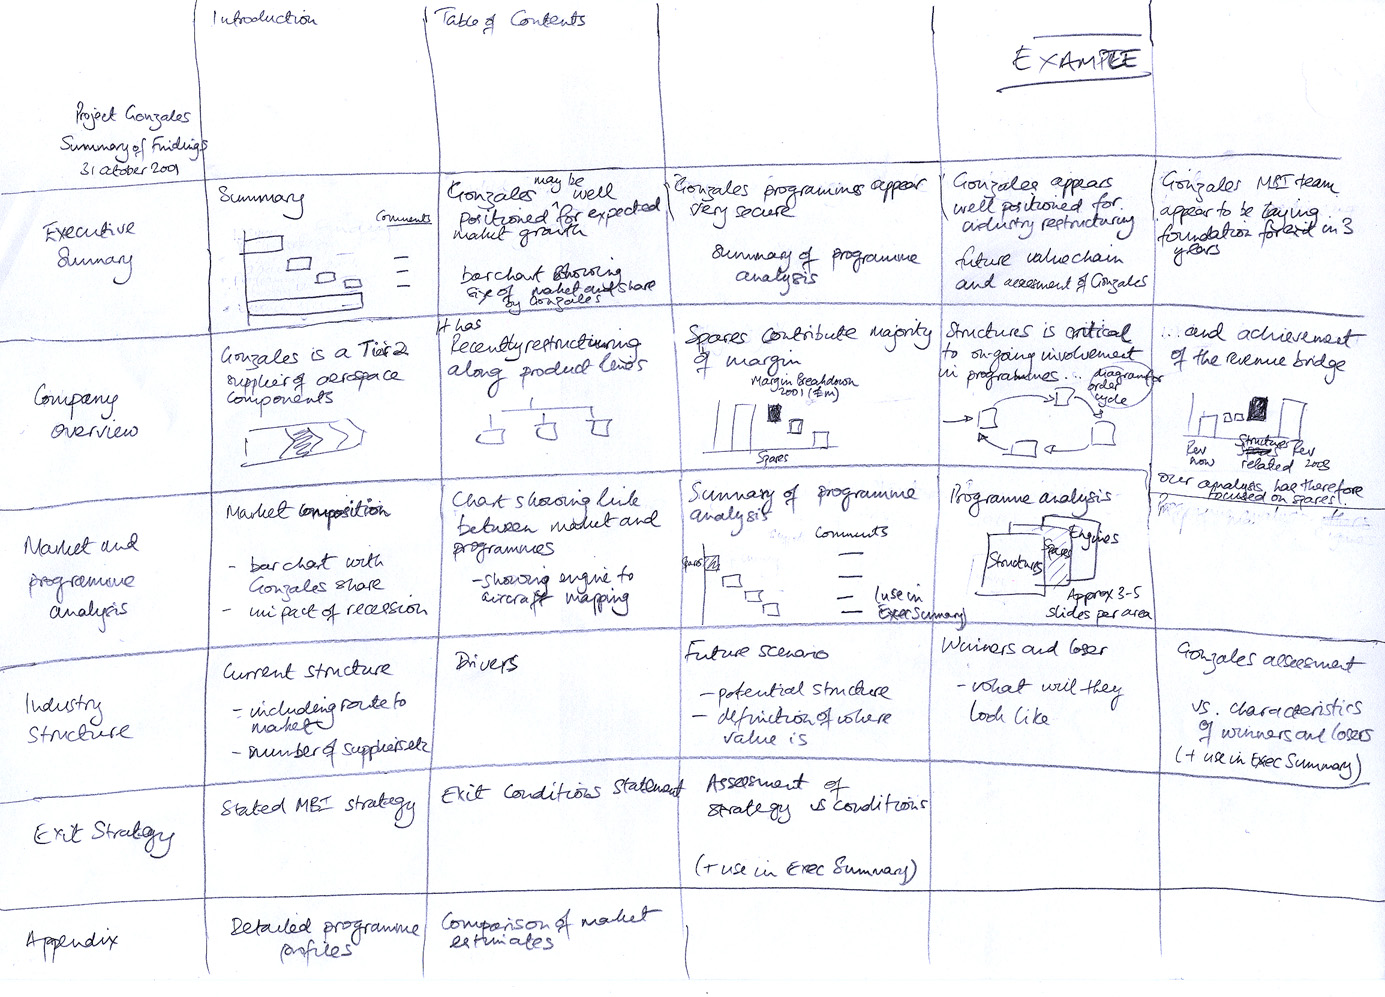 Introduction
Table of Contents
EXAMPLE
Project Gonzales
Summary of Findings
31 October 2001
Executive
Summary
Summary
Comments
Gonzales may be well
positioned for expected
market growth
bar chart showing
size of market and share
by Gonzales
Gonzales programmes appear
very secure
Summary of programme
analysis
Gonzales appears
well positioned for
industry restructuring
future value chain
and assessment of Gonzales
Gonzales MBI team
appear to be laying
foundation for exit in 3
years
Company
Overview
Gonzales is a Tier 2
supplier of aerospace
components
It has
Recently restructuring
along product lines
Spares contribute majority
of margin
Margin Breakdown
2001 (£m)
Spares
Structures is critical
to on-going involvement
in programmes...
diagram for
order
cycle
...and achievement
of the revenue bridge
Rev
now
Structures
related
Rev
2008
our analysis has therefore
focused on spares!
Market and
programme
analysis
Market composition
- bar chart with
Gonzales share
- impact of recession
Chart showing link
between market and
programmes
- showing engine to
aircraft mapping
Summary of programme
analysis
Comments
Spares
(use in
Exec Summary)
Programme analysis
Structures
Spares
Engines
Approx 3-5
slides per area
Industry
Structure
Current structure
- including route to
market
- number of suppliers etc
Drivers
Future scenario
- potential structure
- definition of where
value is
Winners and loser
- what will they
look like
Gonzales assessment
vs. characteristics
of winners and losers
(+ use in Exec Summary)
Exit Strategy
Stated MBI strategy
Exit Conditions Statement
Assessment of
strategy vs conditions
(+ use in Exec Summary)
Appendix
Detailed programme
profiles
Comparison of market
estimates